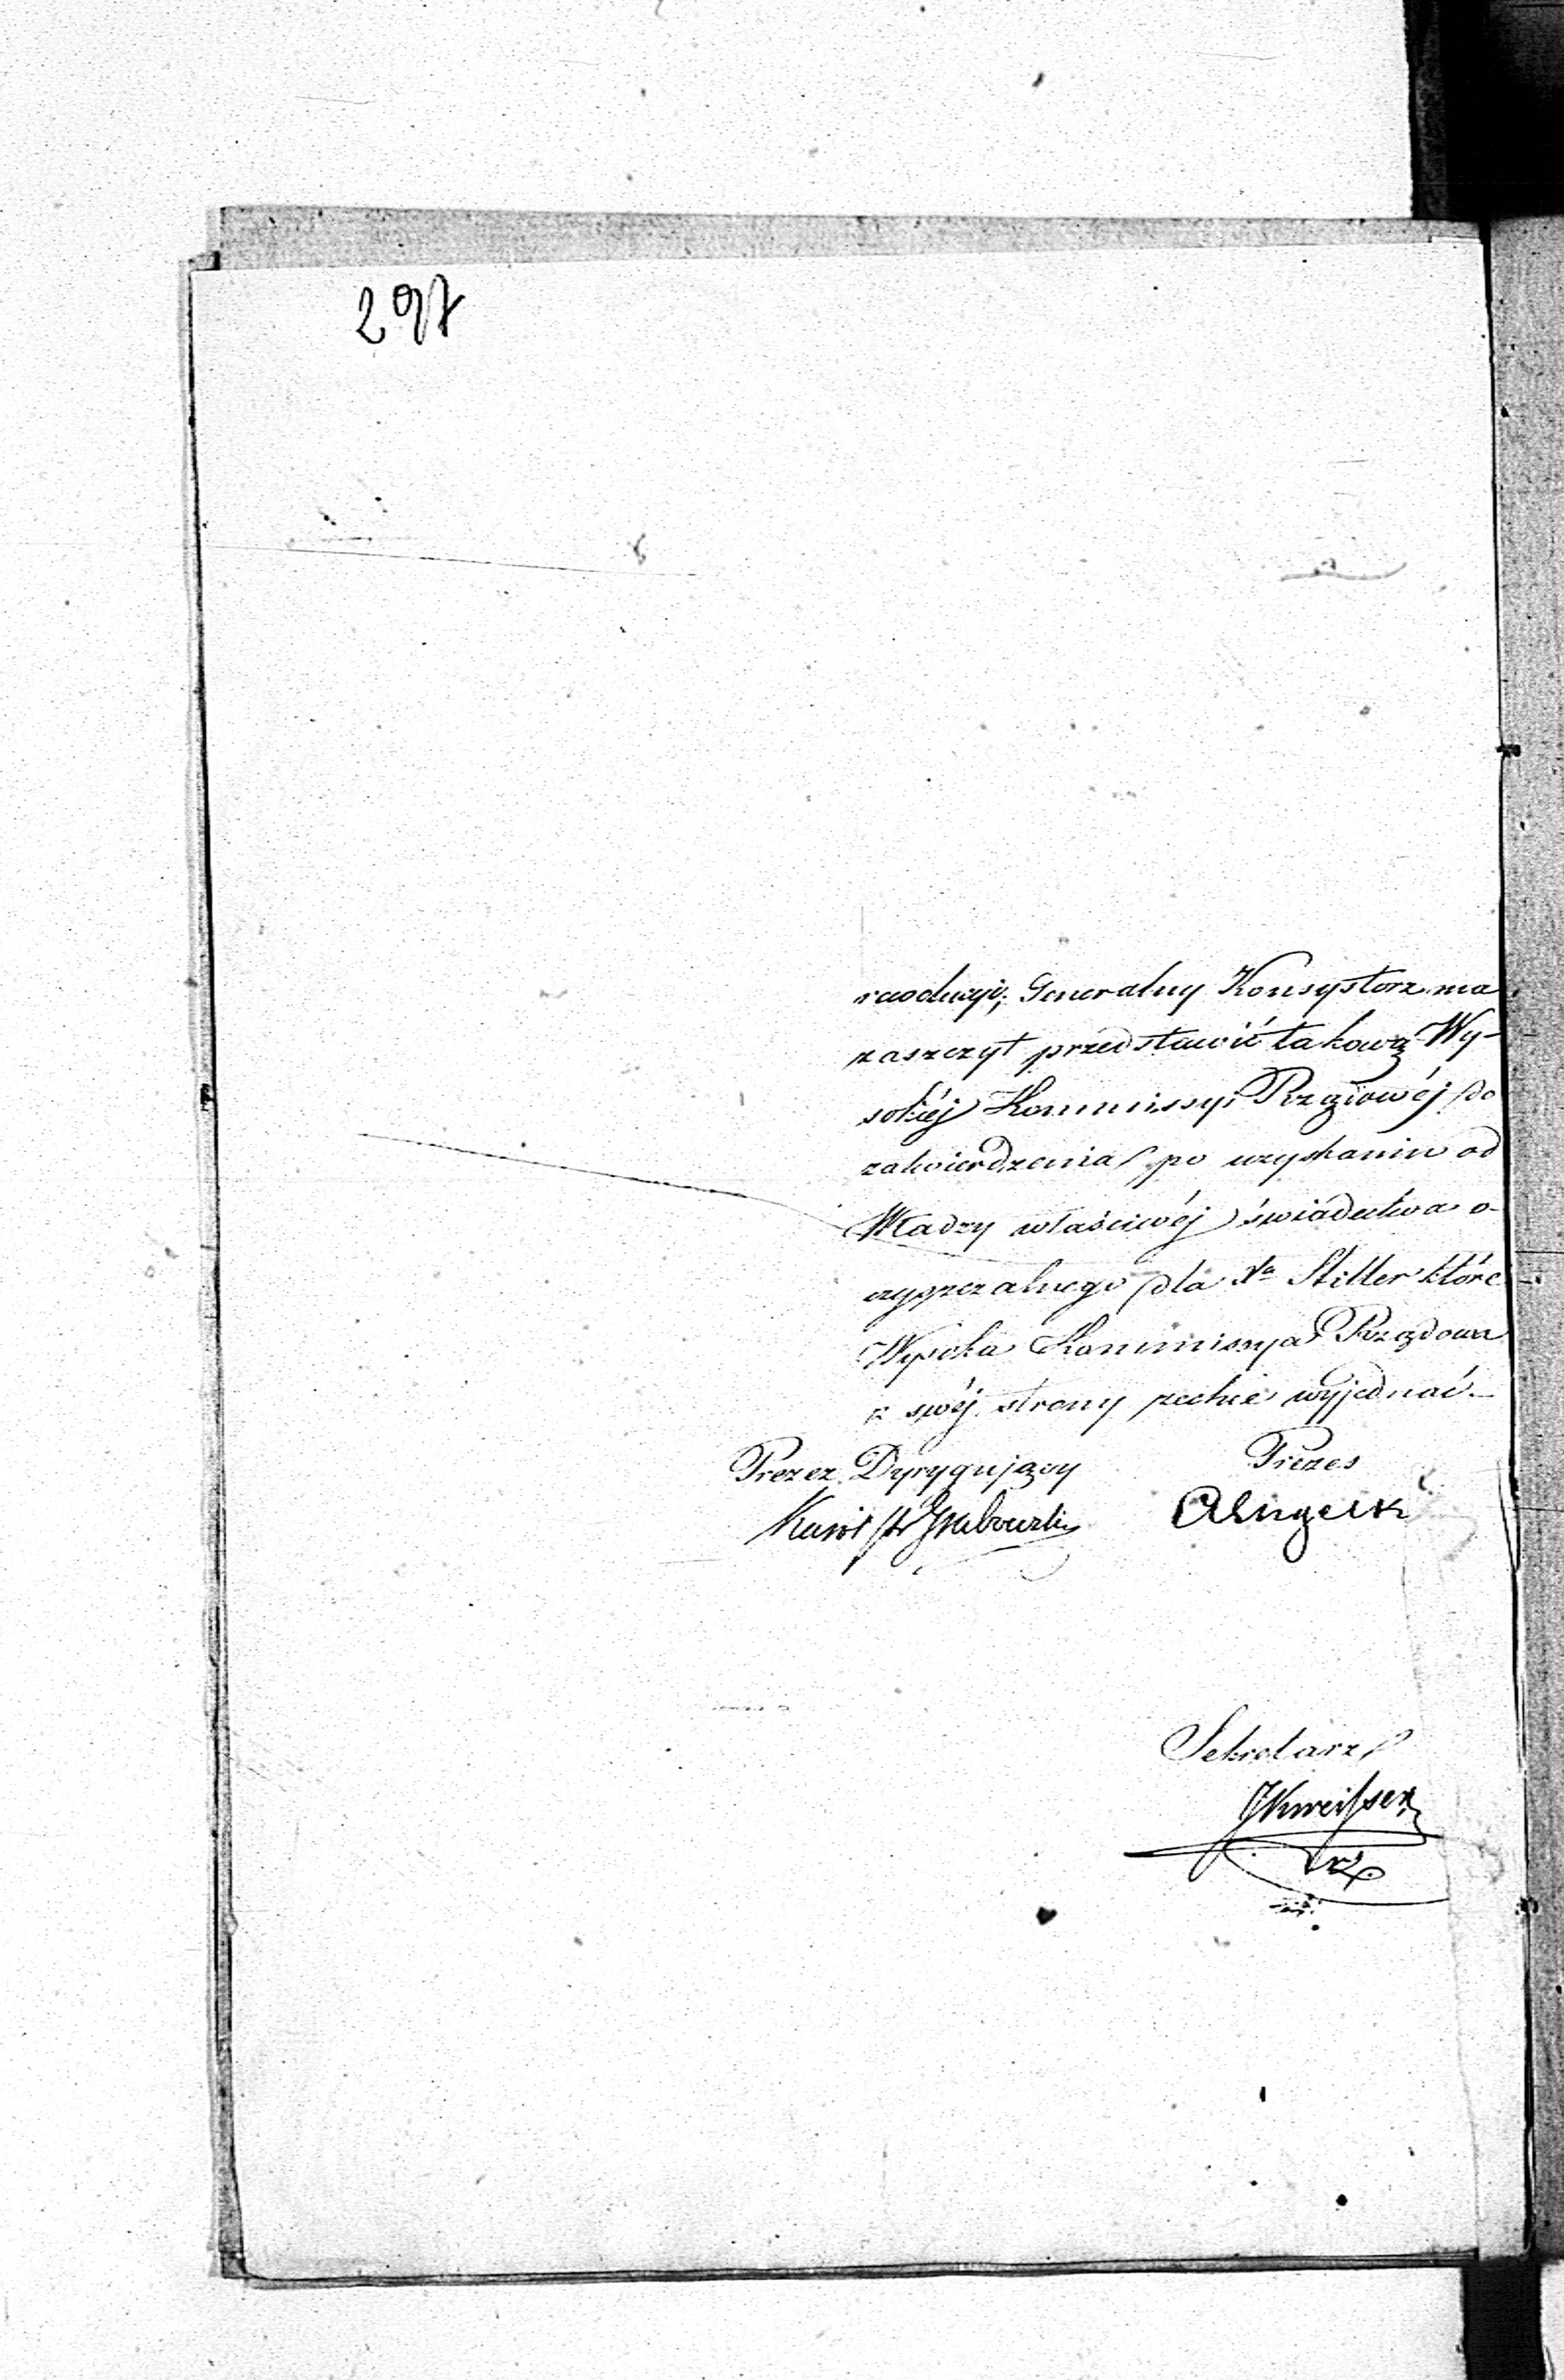 297
Generalny Konsystorz ma
zaszczyt przedstawić takową Wy-
sokiéj Kommissyi Rządowéj do
zatwierdzenia po uzyskaniu od
Władzy właściwéj świadectwa o-
czyszczalnego dla Xa Stiller które
Wysoka Kommissya Rządowa
z swéj strony zechce wyjednać.—
Prezez Dyrygujący Prezes
Karol Grabowski
Sekretarz